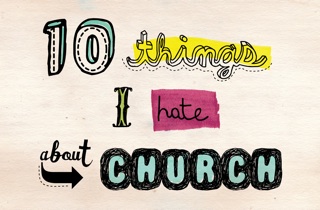 10 things
I hate
about CHURCH